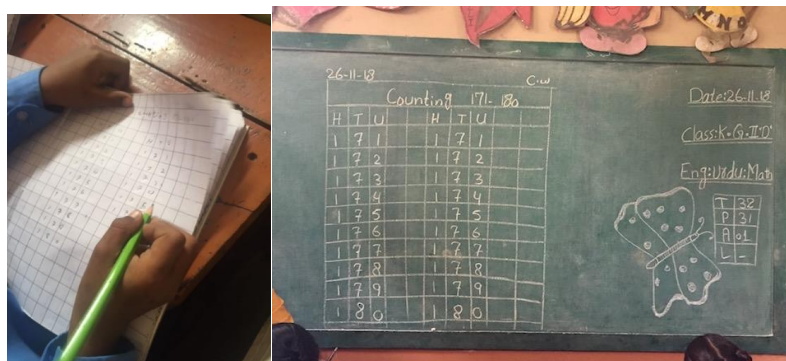 26-11-18
C.W
Counting 171-180
H T U H T U
1 7 1 1 7 1
1 7 2 1 7 2
1 7 3 1 7 3
1 7 4 1 7 4
1 7 5 1 7 5
1 7 6 1 7 6
1 7 7 1 7 7
1 7 8 1 7 8
1 7 9 1 7 9
1 8 0 1 8 0
Date:26-11-18
Class:K.G.II'D'
Eng:Urdu:Math
T 32
P 31
A 01
L -